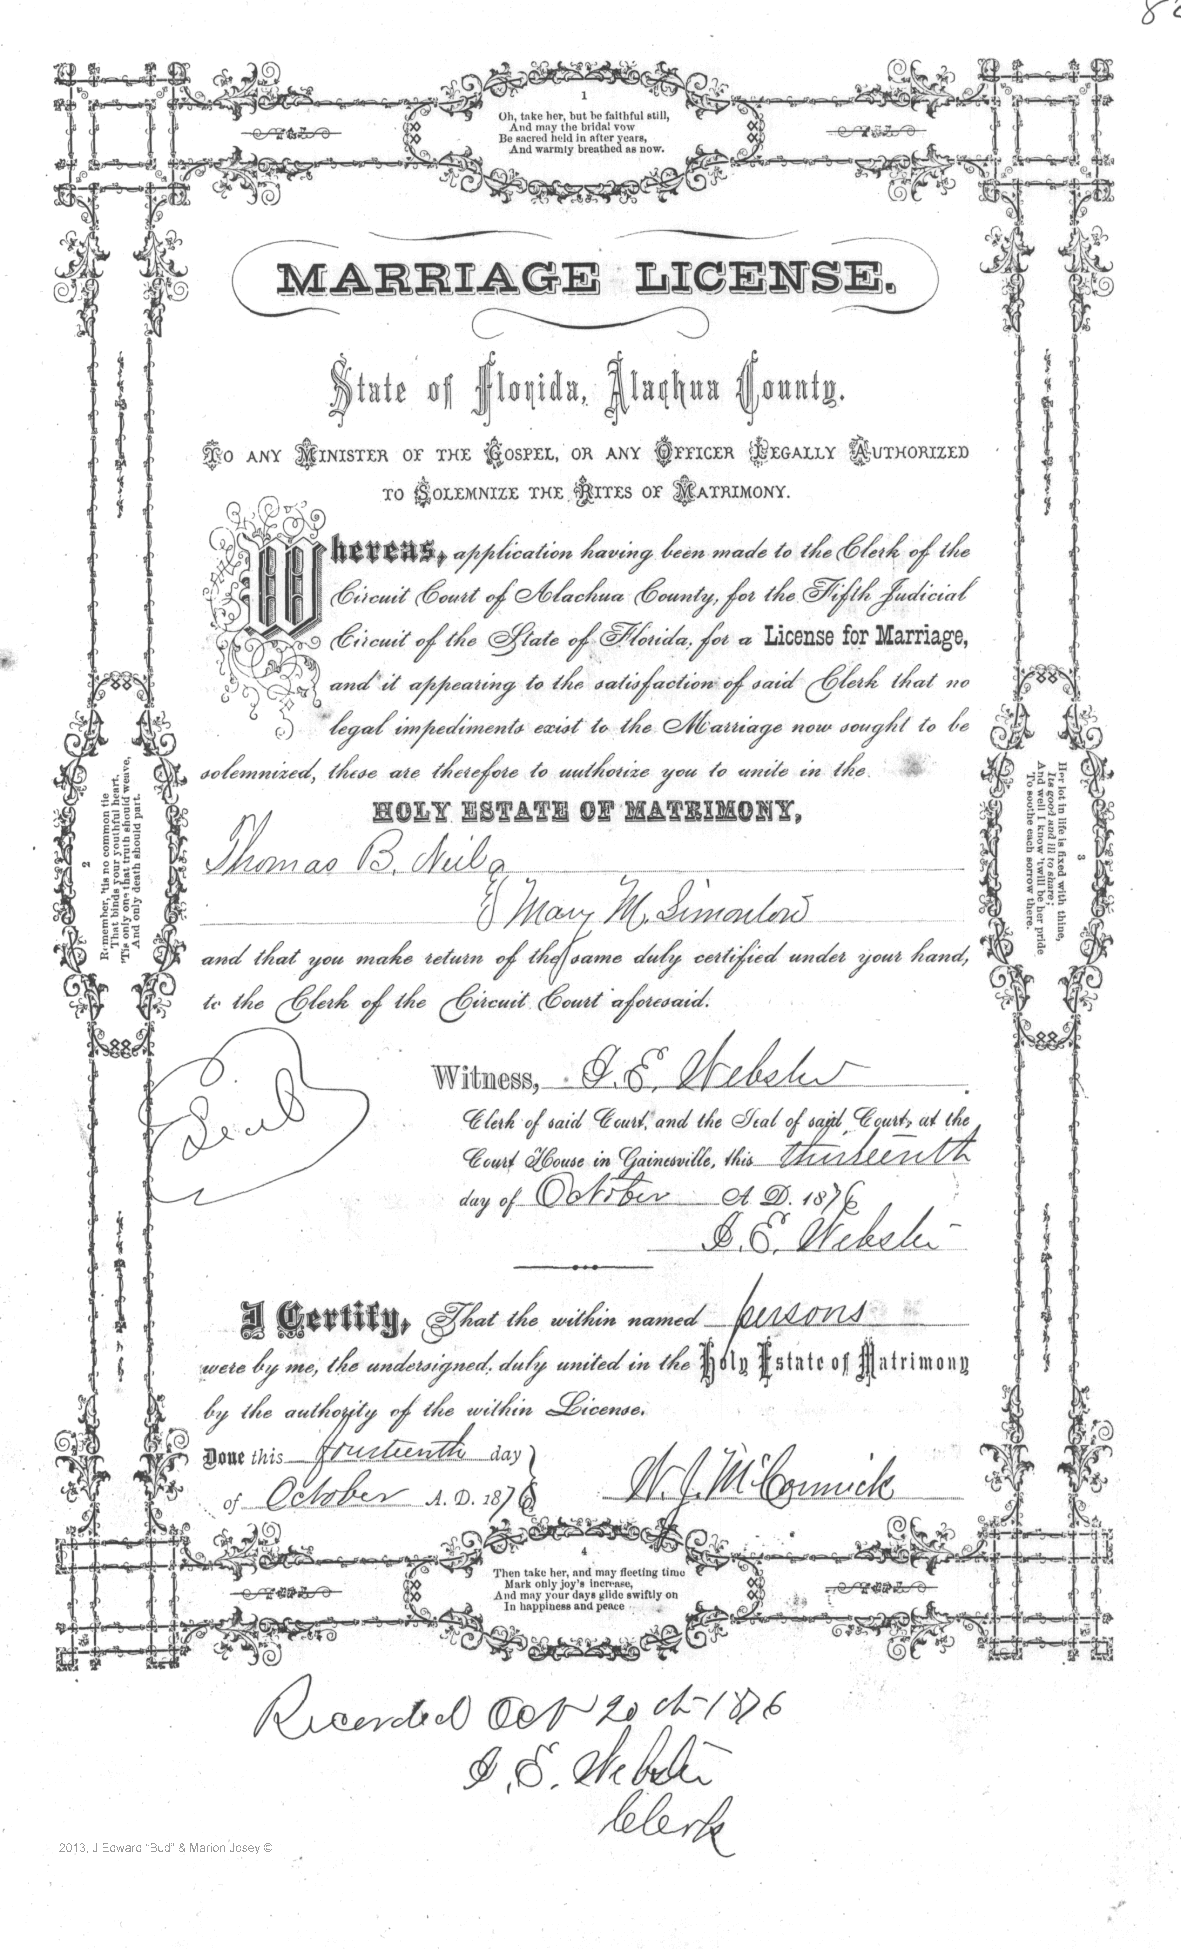 1
Oh, take her, but be faithful still,
And may the bridal vow
Be sacred held in after years,
And warmly breathed as now.
MARRIAGE LICENSE.
State of Florida, Alachua County.
TO ANY MINISTER OF THE GOSPEL, OR ANY OFFICER LEGALLY AUTHORIZED
TO SOLEMNIZE THE RITES OF MATRIMONY.
Whereas, application having been made to the Clerk of the
Circuit Court of Alachua County, for the Fifth Judicial
Circuit of the State of Florida, for a License for Marriage,
and it appearing to the satisfaction of said Clerk that no
legal impediments exist to the Marriage now sought to be
solemnized, these are therefore to authorize you to unite in the
HOLY ESTATE OF MATRIMONY,
Thomas B.
& Mary M.
and that you make return of the same duly certified under your hand,
to the Clerk of the Circuit Court aforesaid.
Seal
Witness, J. E. Webster
Clerk of said Court, and the Seal of said Court, at the
Court House in Gainesville, this thirteenth
day of October A. D. 1876
J. E. Webster
I Certify, That the within named persons
were by me, the undersigned, duly united in the Holy Estate of Matrimony
by the authority of the within License.
Done this fourteenth day
of October A. D. 1876
W. J. McCormick
2
Remember, 'tis no common tie
That binds your youthful heart,
'Tis only one that truth should weave,
And only death should part.
3
Her lot in life is fixed with thine,
Its good and ill to share;
And well I know 'twill be her pride
To soothe each sorrow there.
4
Then take her, and may fleeting time
Mark only joy's increase,
And may your days glide swiftly on
In happiness and peace
Recorded Oct 20th 1876
J. E. Webster
Clerk
2013, J Edward "Bud" & Marion Josey ©